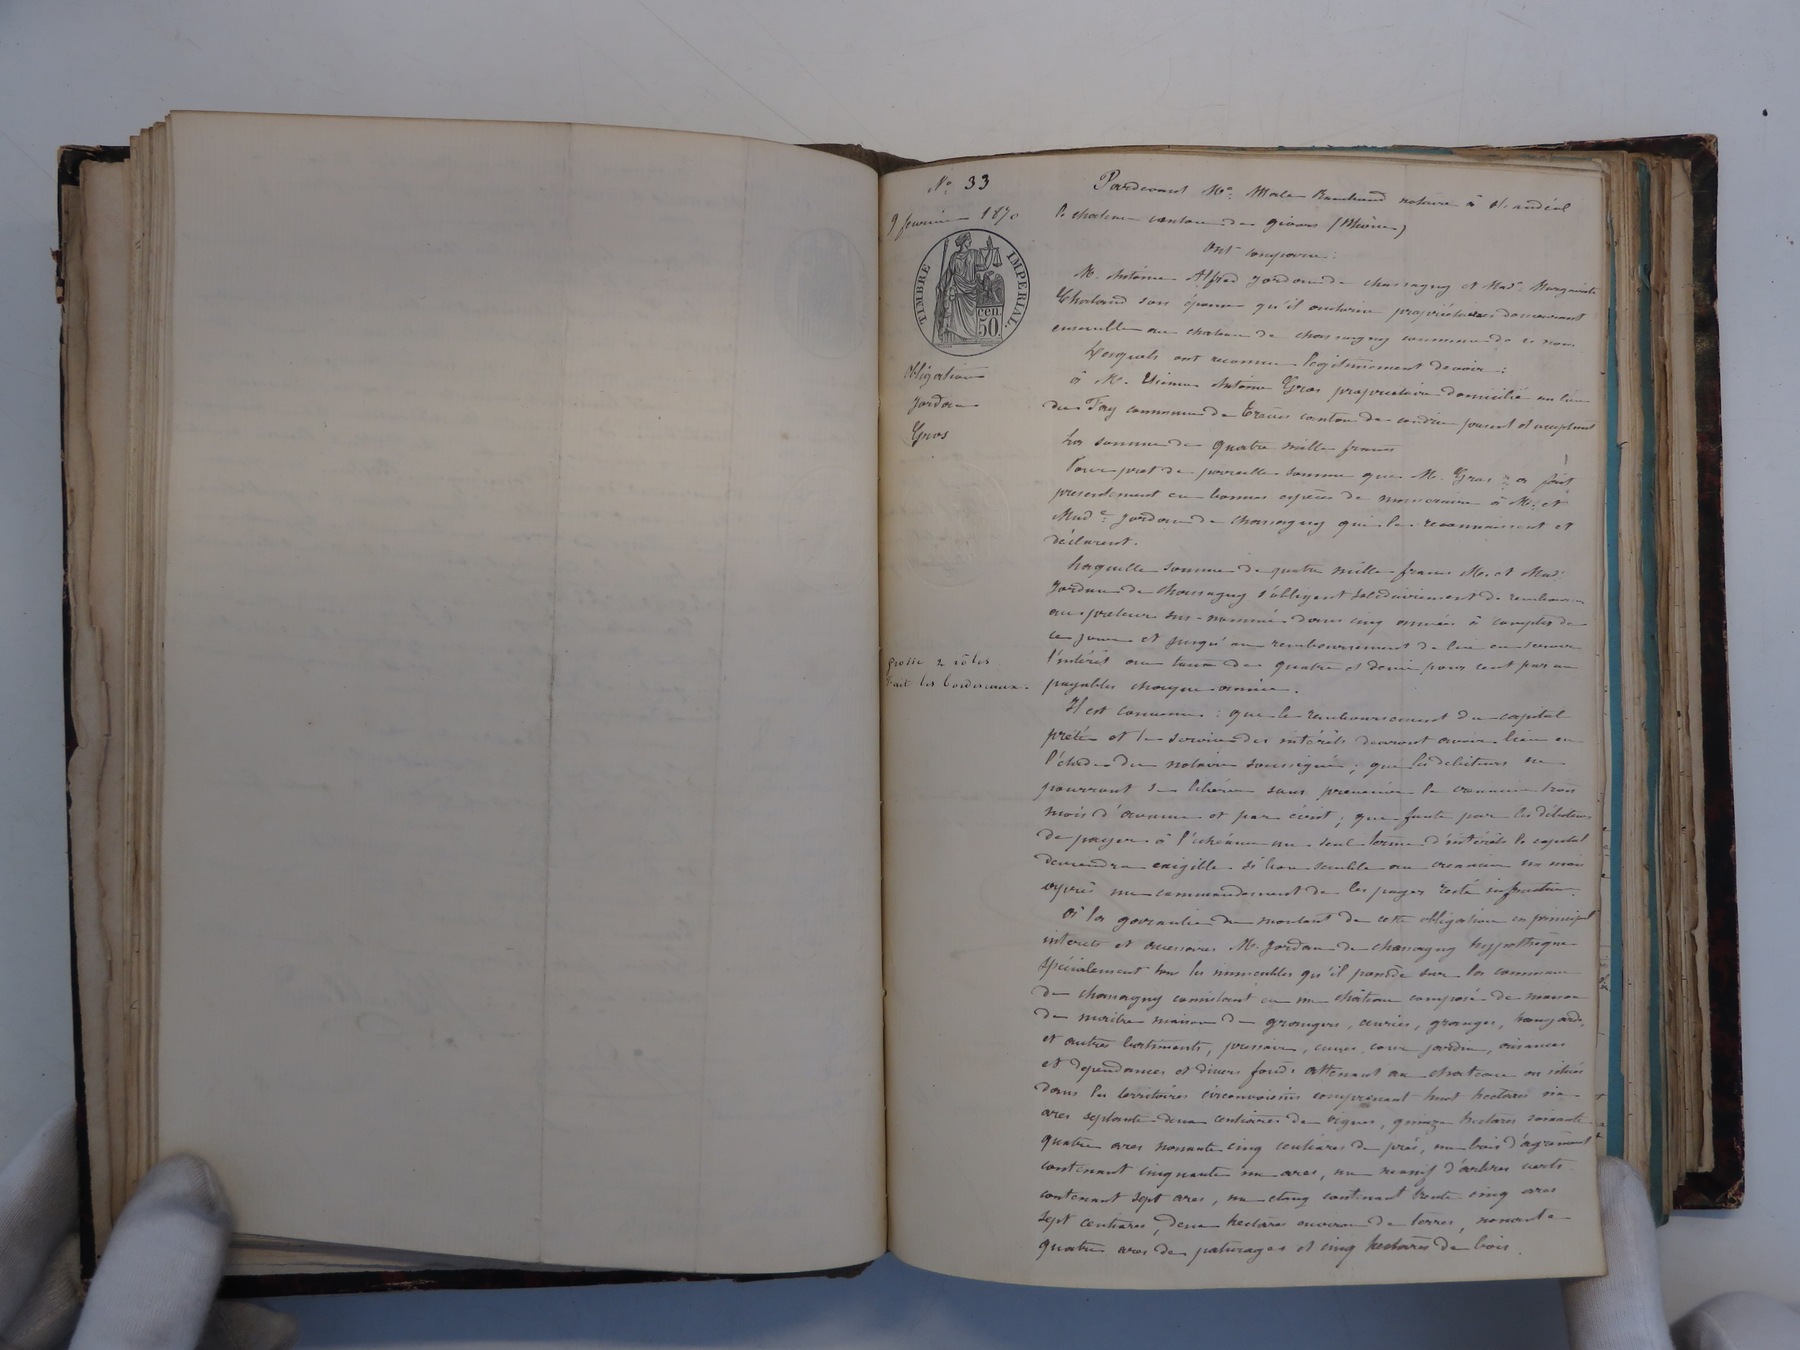 N° 33
9 février 1870
TIMBRE IMPERIAL
cen.
50.
Obligation
Jordan
Gros
Grosse 2 rôles
Fait les bordereaux.
Pardevant Me notaire à St andéol
le chateau canton de givors (Rhône)
Ont comparu :
M. Antoine Alfred Jordan de chassagny et Made Marguerite
son épouse qu'il autorise propriétaires demeurant
ensemble au chateau de chassagny commune de ce nom
Lesquels ont reconnu légitimement devoir :
à M. Etienne Antoine Gros propriétaire domicilié au lieu
du Fay commune de Trèves canton de condrieu present et acceptant
La somme de quatre mille francs
Pour pret de pareille somme que M. Gros a fait
presentement en bonnes espèces de numeraire à M. et
Made Jordan de chassagny qui le reconnaissent et
déclarent.
Laquelle somme de quatre mille francs M. et Made
Jordan de Chassagny s'obligent solidairement de rembourser
au preteur sus-nommé dans cinq années à compter de
ce jour et jusqu'au remboursement de lui en servir
l'intérêt au taux de quatre et demi pour cent par an
payables chaque année.
Il est convenu : que le remboursement du capital
prêté et le service des intérêts devront avoir lieu en
l'étude du notaire soussigné ; que les débiteurs ne
pourront se libérer sans prevenir le creancier trois
mois d'avance et par écrit ; que faute par les débiteurs
de payer à l'échéance un seul terme d'intérêts le capital
deviendra exigible si bon semble au creancier un mois
après un commandement de les payer resté infructueux.
A la garantie du montant de cette obligation en principal
interets et accessoires M. Jordan de chassagny hypothèque
spécialement tous les immeubles qu'il possède sur la commune
de chassagny consistant en un château composé de maison
de maitre maison de grangers, écuries, granges, hangards,
et autres batiments, pressoir, cuves, cour jardin, aisances
et dependances et divers fonds attenant au chateau ou situés
dans les territoires circonvoisins comprenant huit hectares six
ares septante deux centiares de vignes, quinze hectares soixante
quatre ares nonante cinq centiares de prés, un bois d'agrément
contenant cinquante un ares, un massif d'arbres verts
contenant sept ares, un etang contenant trente cinq ares
sept centiares, deux hectares environ de terres, nonante
quatre ares de paturages et cinq hectares de bois.